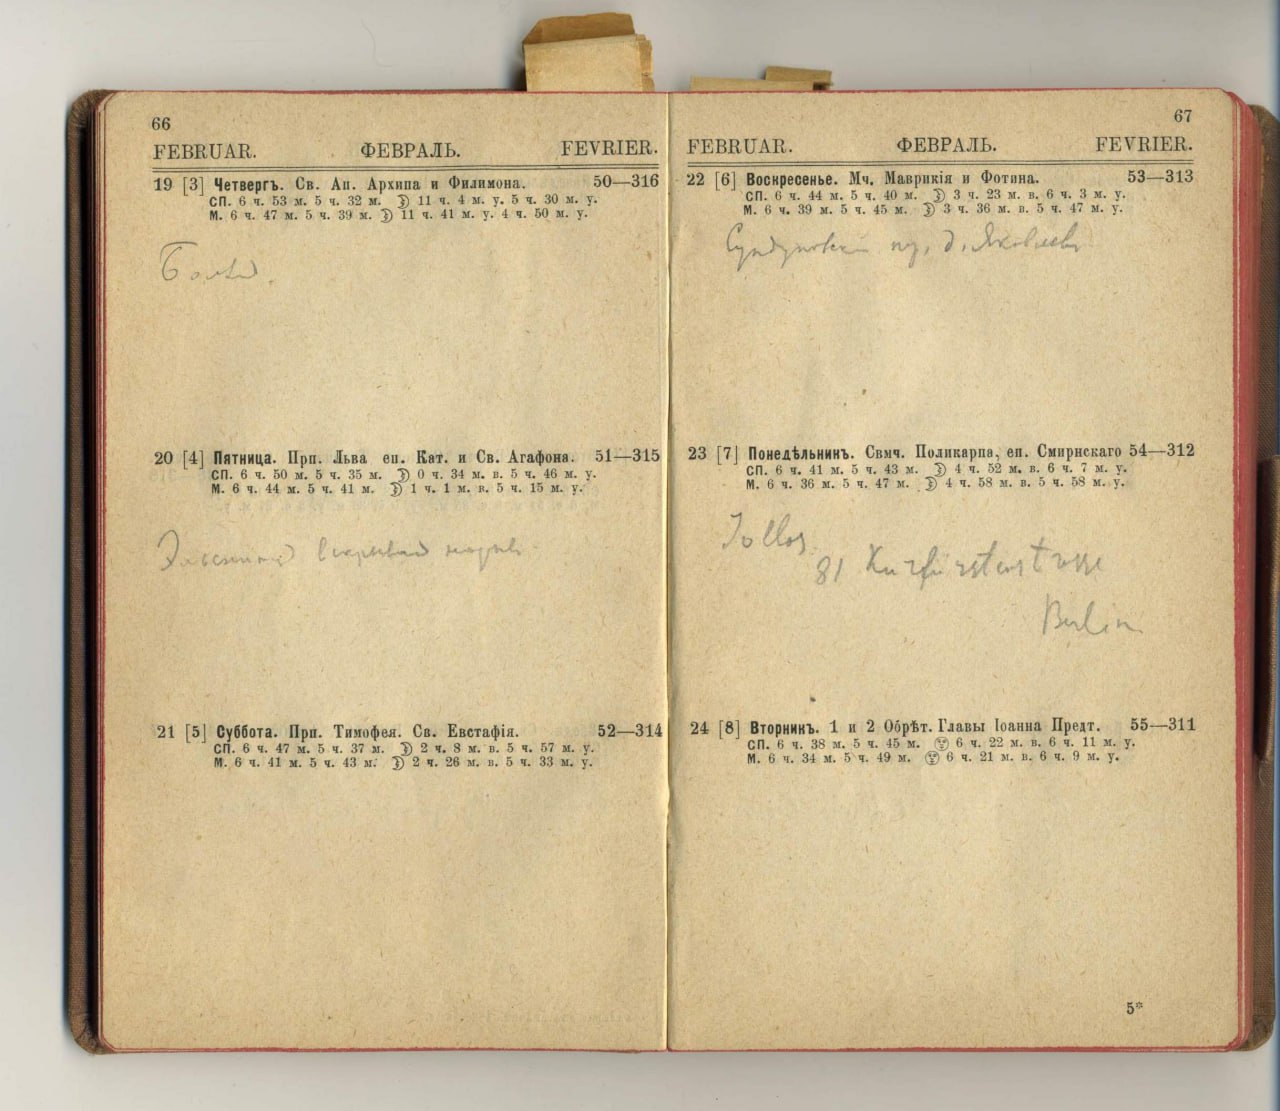 66
FEBRUAR. ФЕВРАЛЬ. FEVRIER.
19 [3] Четвергъ. Св. Ап. Архипа и Филимона. 50—316
СП. 6 ч. 53 м. 5 ч. 32 м. 11 ч. 4 м. у. 5 ч. 30 м. у.
М. 6 ч. 47 м. 5 ч. 39 м. 11 ч. 41 м. у. 4 ч. 50 м. у.
20 [4] Пятница. Прп. Льва еп. Кат. и Св. Агафона. 51—315
СП. 6 ч. 50 м. 5 ч. 35 м. 0 ч. 34 м. в. 5 ч. 46 м. у.
М. 6 ч. 44 м. 5 ч. 41 м. 1 ч. 1 м. в. 5 ч. 15 м. у.
21 [5] Суббота. Прп. Тимофея. Св. Евстафія. 52—314
СП. 6 ч. 47 м. 5 ч. 37 м. 2 ч. 8 м. в. 5 ч. 57 м. у.
М. 6 ч. 41 м. 5 ч. 43 м. 2 ч. 26 м. в. 5 ч. 33 м. у.
67
FEBRUAR. ФЕВРАЛЬ. FEVRIER.
22 [6] Воскресенье. Мч. Маврикія и Фотина. 53—313
СП. 6 ч. 44 м. 5 ч. 40 м. 3 ч. 23 м. в. 6 ч. 3 м. у.
М. 6 ч. 39 м. 5 ч. 45 м. 3 ч. 36 м. в. 5 ч. 47 м. у.
д. Яковлева
23 [7] Понедѣльникъ. Свмч. Поликарпа, еп. Смирнскаго 54—312
СП. 6 ч. 41 м. 5 ч. 43 м. 4 ч. 52 м. в. 6 ч. 7 м. у.
М. 6 ч. 36 м. 5 ч. 47 м. 4 ч. 58 м. в. 5 ч. 58 м. у.
Jollos
81 Kurfürstenstrasse
Berlin
24 [8] Вторникъ. 1 и 2 Обрѣт. Главы Іоанна Предт. 55—311
СП. 6 ч. 38 м. 5 ч. 45 м. 6 ч. 22 м. в. 6 ч. 11 м. у.
М. 6 ч. 34 м. 5 ч. 49 м. 6 ч. 21 м. в. 6 ч. 9 м. у.
5*